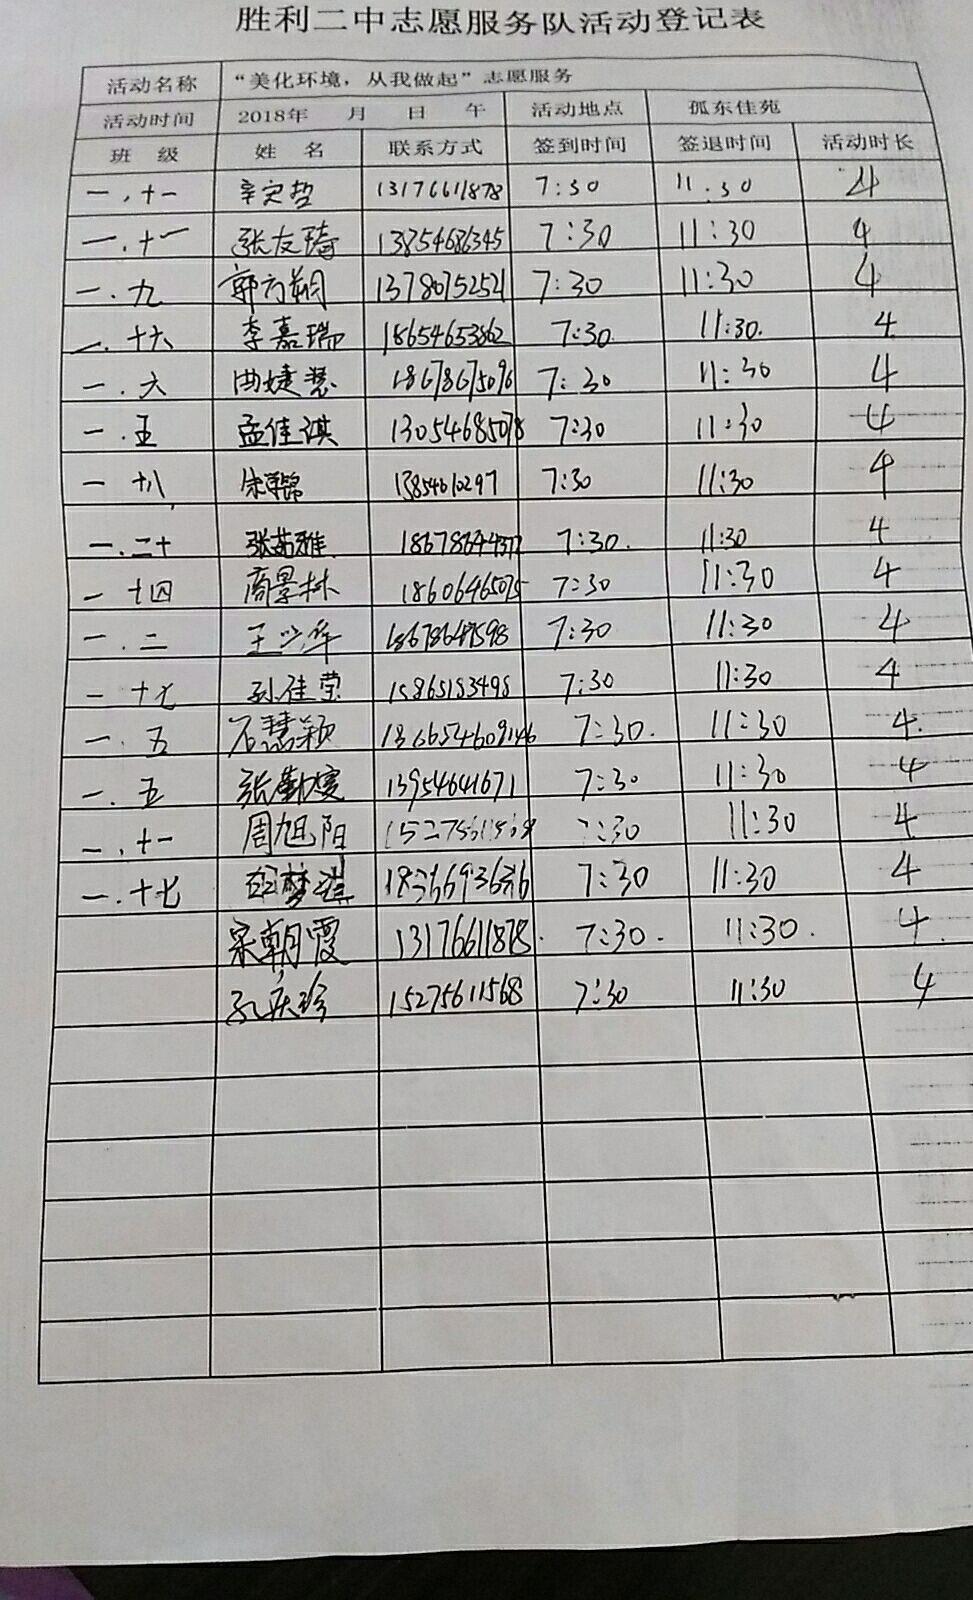 胜利二中志愿服务队活动登记表
活动名称 “美化环境，从我做起”志愿服务
活动时间 2018年 月 日 午 活动地点 孤东佳苑
班 级 姓 名 联系方式 签到时间 签退时间 活动时长
一.十一 辛定哲 13176611878 7:30 11:30 4
一.十一 张友琦 13854686345 7:30 11:30 4
一.九 郭方朔 13780752521 7:30 11:30 4
一.十六 李嘉瑞 18654653862 7:30. 11:30. 4
一.六 曲婕慧 18678675096 7:30 11:30 4
一.五 孟佳淇 13054685078 7:30 11:30 4
一 十八 7:30 11:30 4
一.二十 张茹雅 7:30. 11:30 4
一 十四 商景林 18606465075 7:30 11:30 4
一.二 王兴华 18678647598 7:30 11:30 4
一 十七 孙佳莹 15865183498 7:30 11:30 4
一.五 石慧颖 7:30. 11:30 4.
一.五 张勤虔 13954641671 7:30 11:30 4
一.十一 周旭阳 7:30 11:30 4
一.十七 7:30 11:30 4
宋朝霞 13176611878. 7:30. 11:30. 4.
孔庆珍 15275611568 7:30 11:30 4